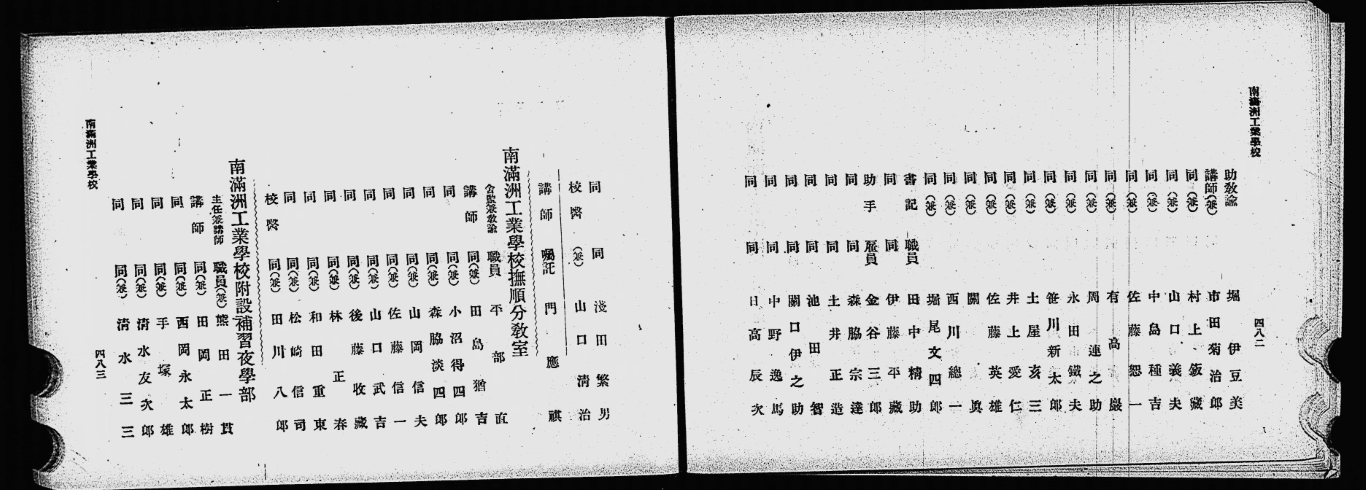 南滿洲工業學校
四八二
助教諭 堀伊豆美
講師(兼) 市田菊治郎
同(兼) 村上鈑藏
同(兼) 山口義夫
同(兼) 中島種吉
同(兼) 佐藤恕一
同(兼) 有高巖
同(兼) 周連之助
同(兼) 永田鐵夫
同(兼) 笹川新太郎
同(兼) 土屋亥三
同(兼) 井上愛仁
同(兼) 佐藤英雄
同(兼) 關眞
同(兼) 西川總一
同(兼) 堀尾文四郎
書記 職員 田中精助
同 同 伊藤平藏
助手 雇員 金谷三郎
同 同 森脇宗達
同 同 土井正造
同 同 池田智
同 同 關口伊之助
同 同 中野逸馬
同 同 日高辰次
同 同 淺田繁男
校醫 (兼) 山口清治
講師 囑託 門應祺
南滿洲工業學校撫順分敎室
職員 平部直
講師 同(兼) 田島猶吉
同 同(兼) 小沼得四郎
同 同(兼) 森脇淡四郎
同 同(兼) 山岡信夫
同 同(兼) 佐藤信一
同 同(兼) 山口武吉
同 同(兼) 後藤收藏
同 同(兼) 林正春
同 同(兼) 和田重東
同 同(兼) 松崎信司
校醫 同(兼) 田川八郎
南滿洲工業學校附設補習夜學部
主任兼講師 職員(兼) 熊田一貫
講師 同(兼) 田岡正樹
同 同(兼) 西岡永太郎
同 同(兼) 手塚雄
同 同(兼) 清水友次郎
同 同(兼) 清水三三
南滿洲工業學校
四八三